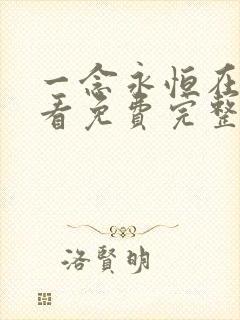 一念永恒在
看免费完整
洛賢明